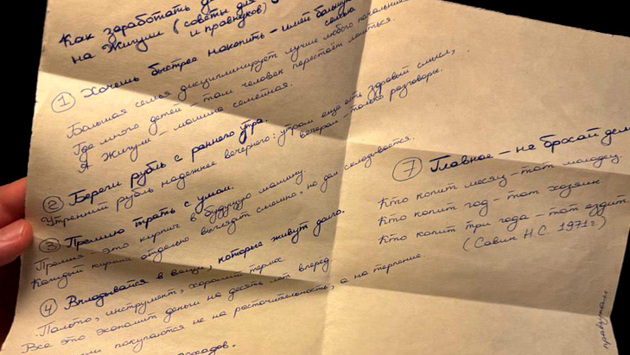 Как заработать де
на Жигули (советы для
и правнуков)
① Хочешь быстрее накопить – имей большую
семью
Большая семья дисциплинирует лучше любого начальника.
Где много детей – там человек перестаёт лениться.
А Жигули – машина семейная.
② Береги рубль с раннего утра.
Утренний рубль надежнее вечернего: утром ещё есть здравый смысл,
вечером – только разговоры.
③ Премию трать с умом.
Премия – это кирпич в будущую машину.
Каждый кирпич отдельно выглядит смешно, но дом складывается.
④ Вкладывайся в вещи, которые живут долго.
Пальто, инструмент, хороший термос
Все это экономит деньги на десять лет вперед
покупаются не на расточительность, а на терпение.
расходов.
⑦ Главное – не бросай дел
Кто копит месяц – тот молодец.
Кто копит год – тот хозяин
Кто копит три года – тот ездит.
(Савин Н.С. 1971г)